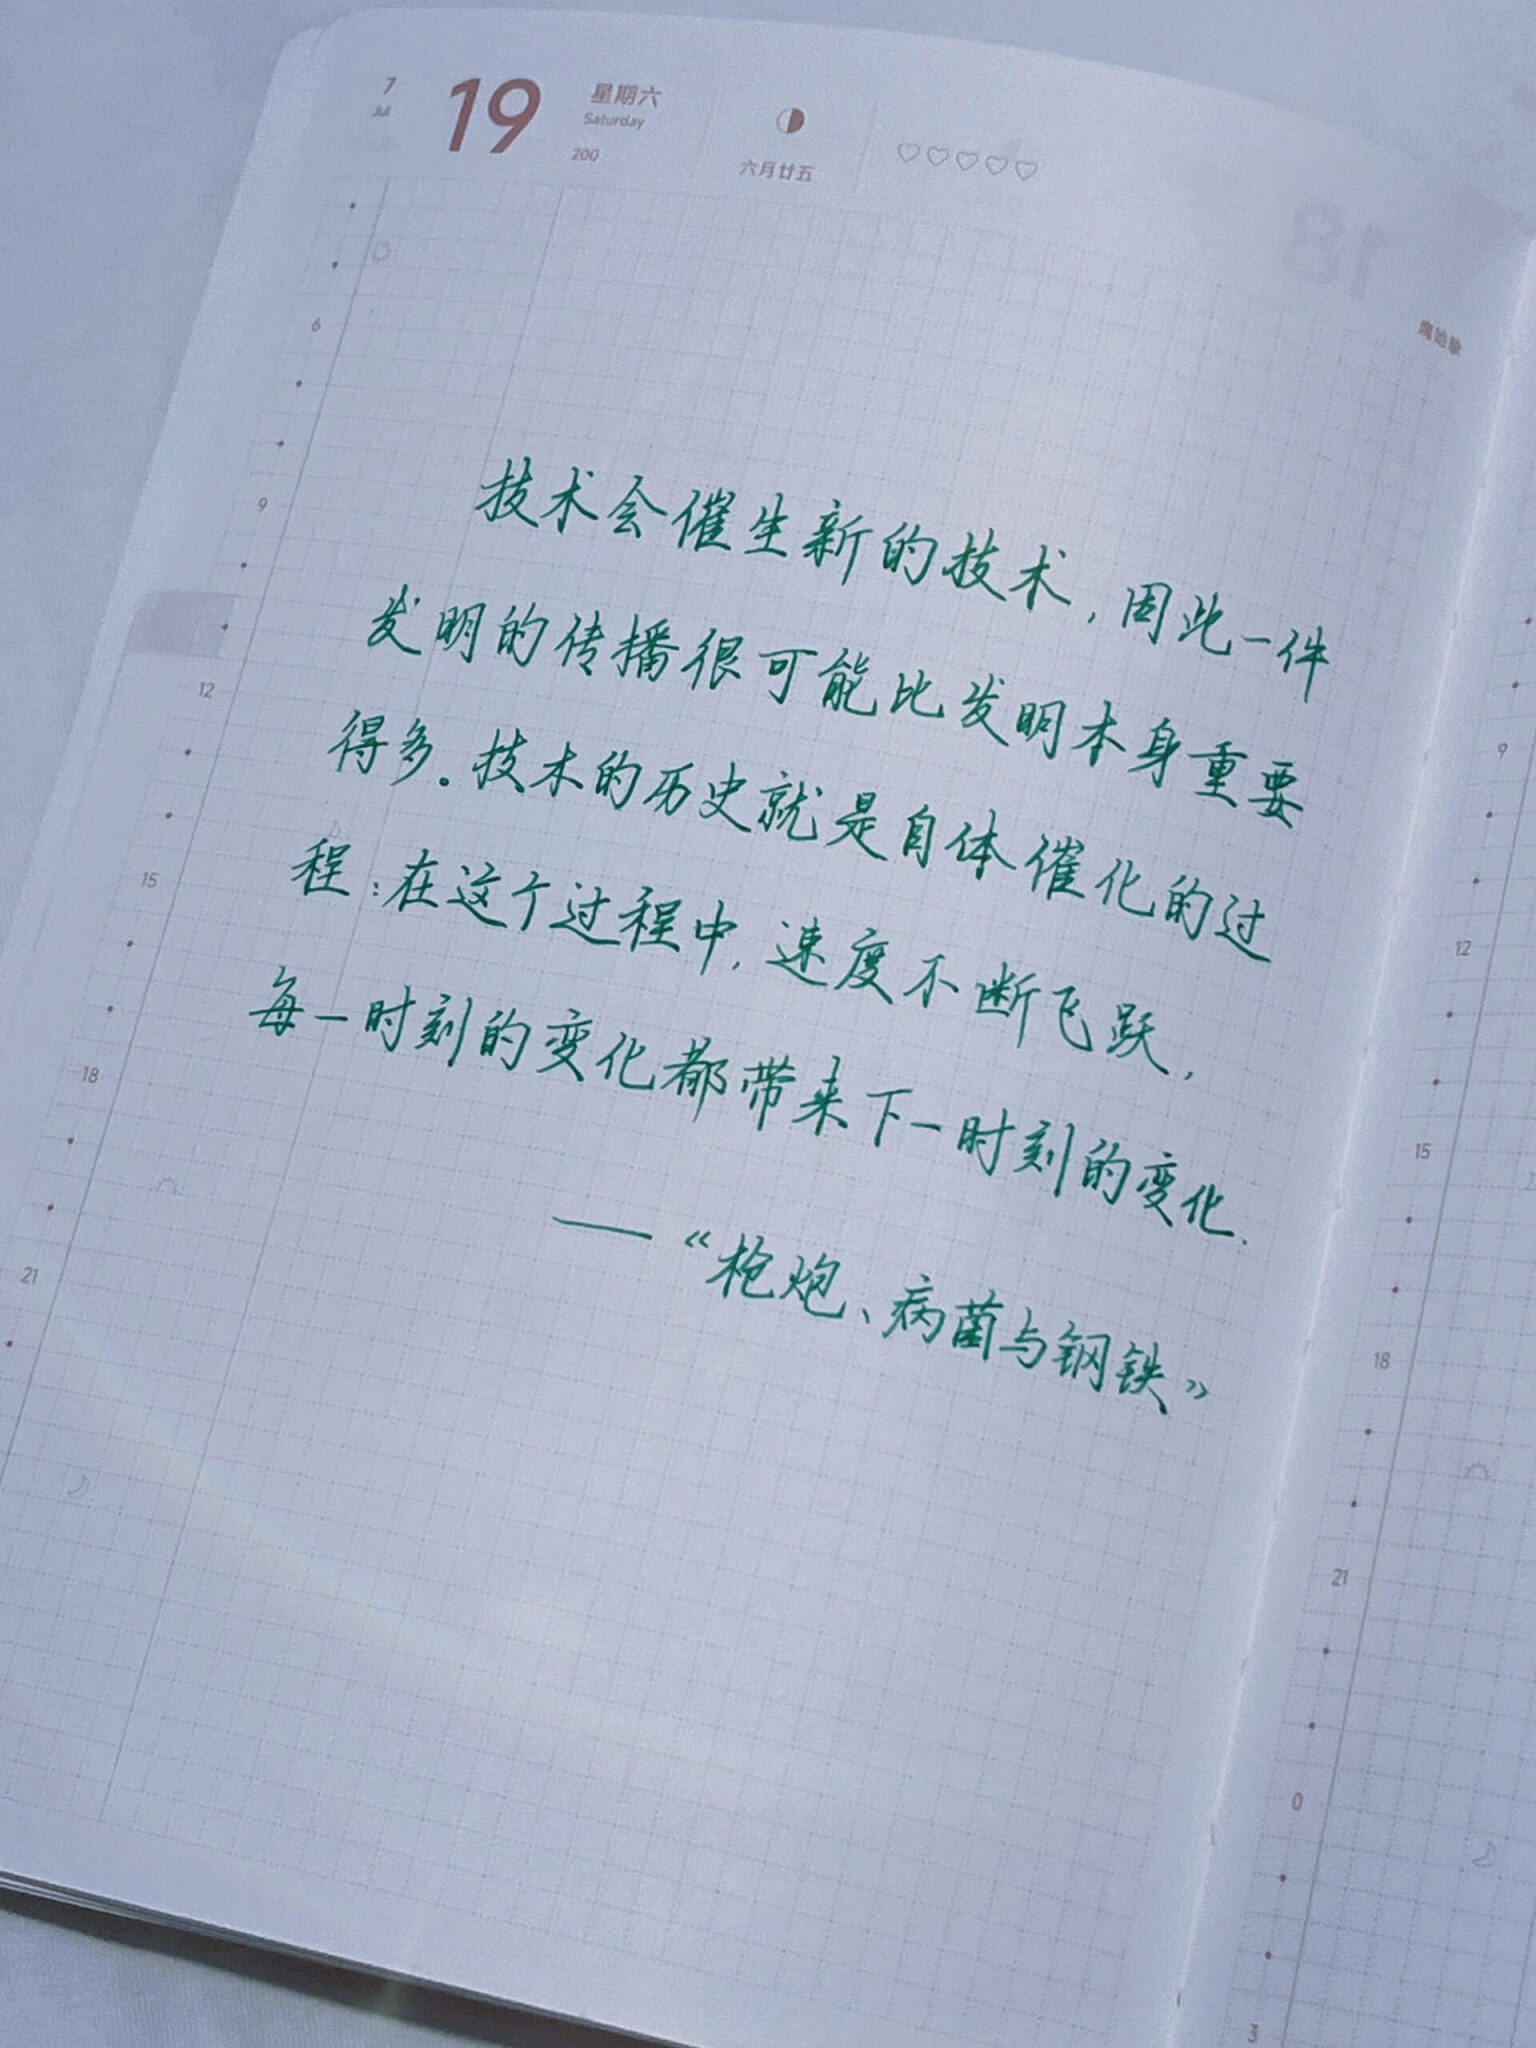 7
Jul
19
星期六
Saturday
200
六月廿五
6
9
12
15
18
21
技术会催生新的技术,因此一件
发明的传播很可能比发明本身重要
得多。技术的历史就是自体催化的过
程:在这个过程中,速度不断飞跃,
每一时刻的变化都带来下一时刻的变化.
——《枪炮、病菌与钢铁》
9
12
15
18
21
0
3